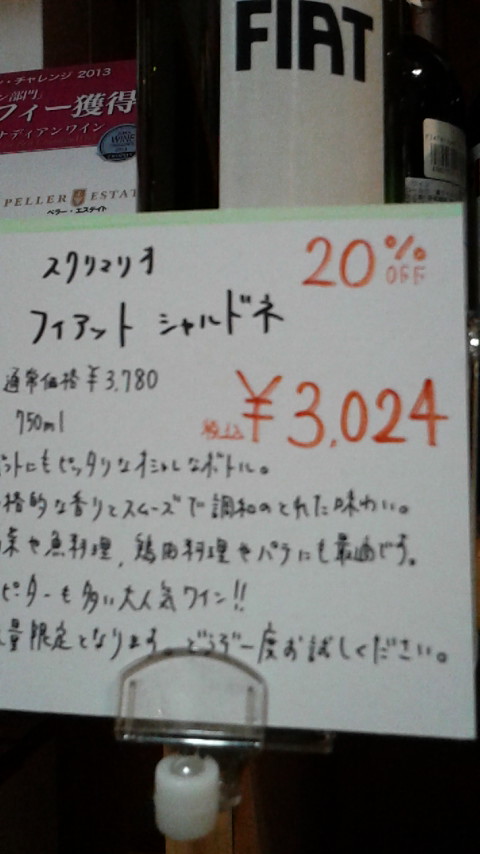 FIAT
・チャレンジ 2013
ン部門」
フィー獲得
ナディアンワイン
PELLER ESTAT
ペラー・エステイト
スクリマリオ
20% OFF
フィアット シャルドネ
通常価格 ¥3,780
税込 ¥3,024
750ml
ットにもピッタリなオシャレなボトル。
格的な香りとスムーズで調和のとれた味わい。
菜や魚料理、鶏肉料理やパスタにも最適です。
ピーターも多い大人気ワイン!!
量限定となります。どうぞ一度お試しください。